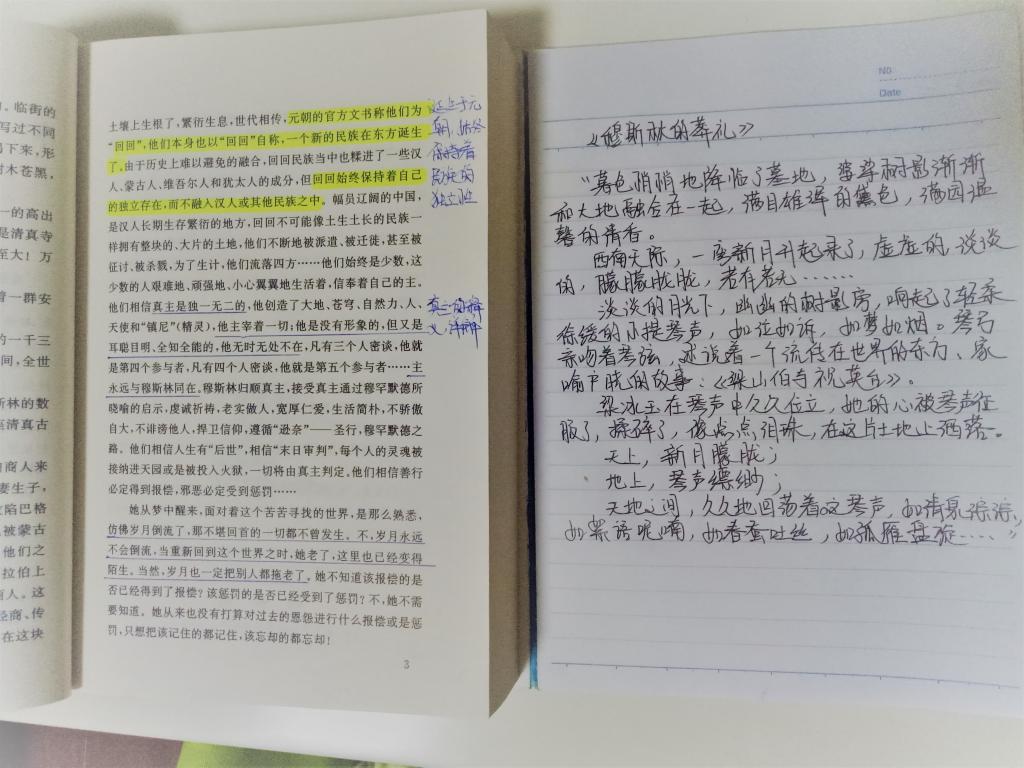 临街的
写过不同
下来，形
树木苍黑，
一的高出
是清真寺
至大！万
着一群安
的一千三
间，全世
斯林的数
座清真古
商人来
妻生子，
攻陷巴格
被蒙古
他们之
拉伯上
商人。这
经商、传
在这块
土壤上生根了，繁衍生息，世代相传，元朝的官方文书称他们为
“回回”，他们本身也以“回回”自称，一个新的民族在东方诞生
了。由于历史上难以避免的融合，回回民族当中也糅进了一些汉
人、蒙古人、维吾尔人和犹太人的成分，但回回始终保持着自己
的独立存在，而不融入汉人或其他民族之中。幅员辽阔的中国，
是汉人长期生存繁衍的地方，回回不可能像土生土长的民族一
样拥有整块的、大片的土地，他们不断地被派遣、被迁徙，甚至被
征讨、被杀戮，为了生计，他们流落四方……他们始终是少数，这
少数的人艰难地、顽强地、小心翼翼地生活着，信奉着自己的主。
他们相信真主是独一无二的，他创造了大地、苍穹、自然力、人、
天使和“镇尼”（精灵），他主宰着一切；他是没有形象的，但又是
耳聪目明、全知全能的，他无时无处不在，凡有三个人密谈，他就
是第四个参与者，凡有四个人密谈，他就是第五个参与者……主
永远与穆斯林同在。穆斯林归顺真主，接受真主通过穆罕默德所
晓喻的启示，虔诚祈祷，老实做人，宽厚仁爱，生活简朴，不骄傲
自大，不诽谤他人，捍卫信仰，遵循“逊奈”——圣行，穆罕默德之
路。他们相信人生有“后世”，相信“末日审判”，每个人的灵魂被
接纳进天园或是被投入火狱，一切将由真主判定。他们相信善行
必定得到报偿，邪恶必定受到惩罚……
她从梦中醒来，面对着这个苦苦寻找的世界，是那么熟悉，
仿佛岁月倒流了，那不堪回首的一切都不曾发生。不，岁月永远
不会倒流，当重新回到这个世界之时，她老了，这里也已经变得
陌生。当然，岁月也一定把别人都拖老了。她不知道该报偿的是
否已经得到了报偿？该惩罚的是否已经受到了惩罚？不，她不需
要知道。她从来也没有打算对过去的恩怨进行什么报偿或是惩
罚，只想把该记住的都记住，该忘却的都忘却！
3
于元
朝，始终
保持着
民族的
独立性
No
Date
《穆斯林的葬礼》
“暮色悄悄地降临了墓地，婆娑树影渐渐
和大地融合在一起，满目雄浑的黛色，满园温
馨的清香。
西南天际，一弯新月升起来了，虚虚的，淡淡
的，朦朦胧胧，若有若无……
淡淡的月光下，幽幽的树影旁，响起了轻柔
徐缓的小提琴声，如泣如诉，如梦如烟。琴弓
亲吻着琴弦，述说着一个流传在世界的东方、家
喻户晓的故事：《梁山伯与祝英台》。
梁冰玉在琴声中久久伫立，她的心被琴声征
服了，揉碎了，像点点泪珠，在这片土地上洒落。
天上，新月朦胧；
地上，琴声缥缈；
天地之间，久久地回荡着这琴声，如清泉淙淙，
如絮语呢喃，如春蚕吐丝，如孤雁盘旋……”